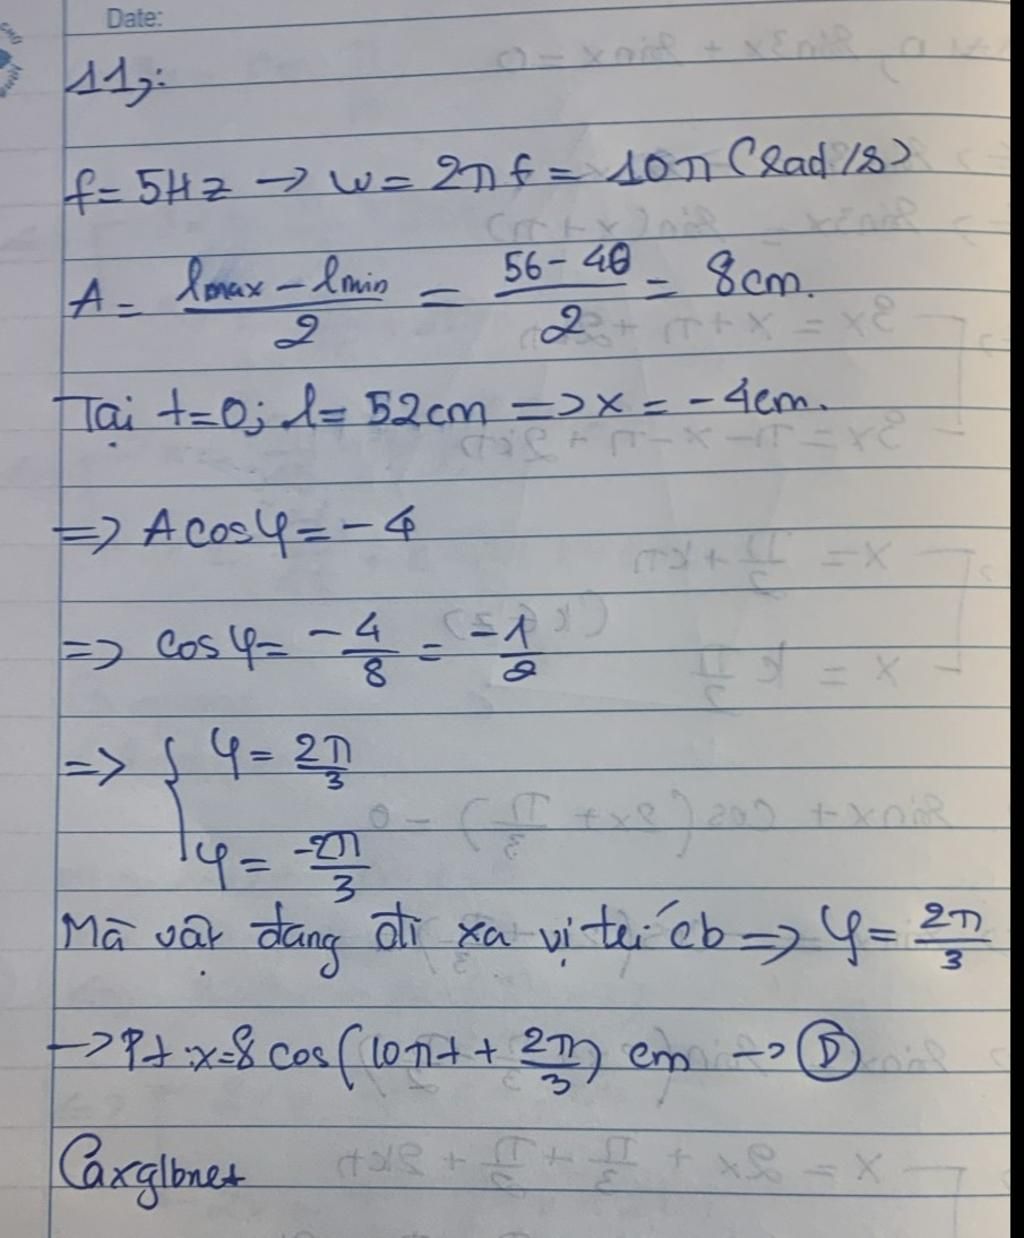 Date:
11,:
f = 5Hz → w = 2πf = 10π (Rad/s)
A = (lmax - lmin)/2 = (56 - 40)/2 = 8cm.
Tại t=0; l = 52cm => x = -4cm.
=> A cos φ = -4
=> cos φ = -4/8 = -1/2
=> { φ = 2π/3
φ = -2π/3
Mà vật đang đi xa vị trí cb => φ = 2π/3
→ Pt : x = 8 cos(10πt + 2π/3) cm → D